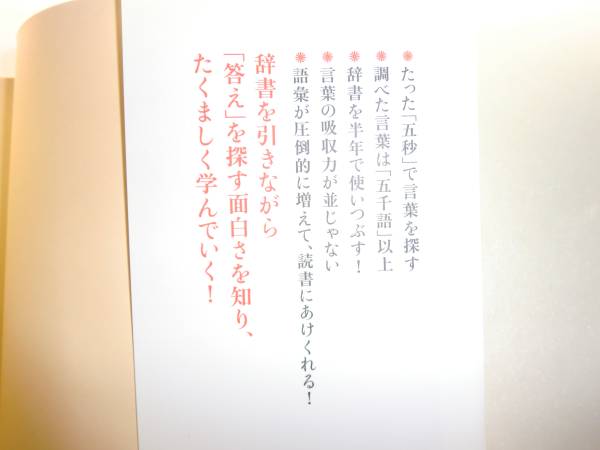 ✺たった「五秒」で言葉を探す
✺調べた言葉は「五千語」以上
✺辞書を半年で使いつぶす！
✺言葉の吸収力が並じゃない
✺語彙が圧倒的に増えて、読書にあけくれる！
辞書を引きながら
「答え」を探す面白さを知り、
たくましく学んでいく！